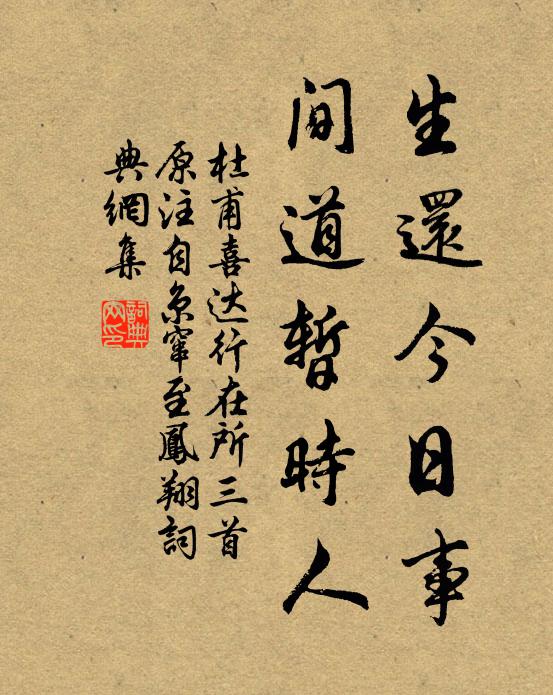 生還今日事
間道暫時人
杜甫喜达行在所三首
原注自京窜至鳳翔詞
典網集
詞典
网印